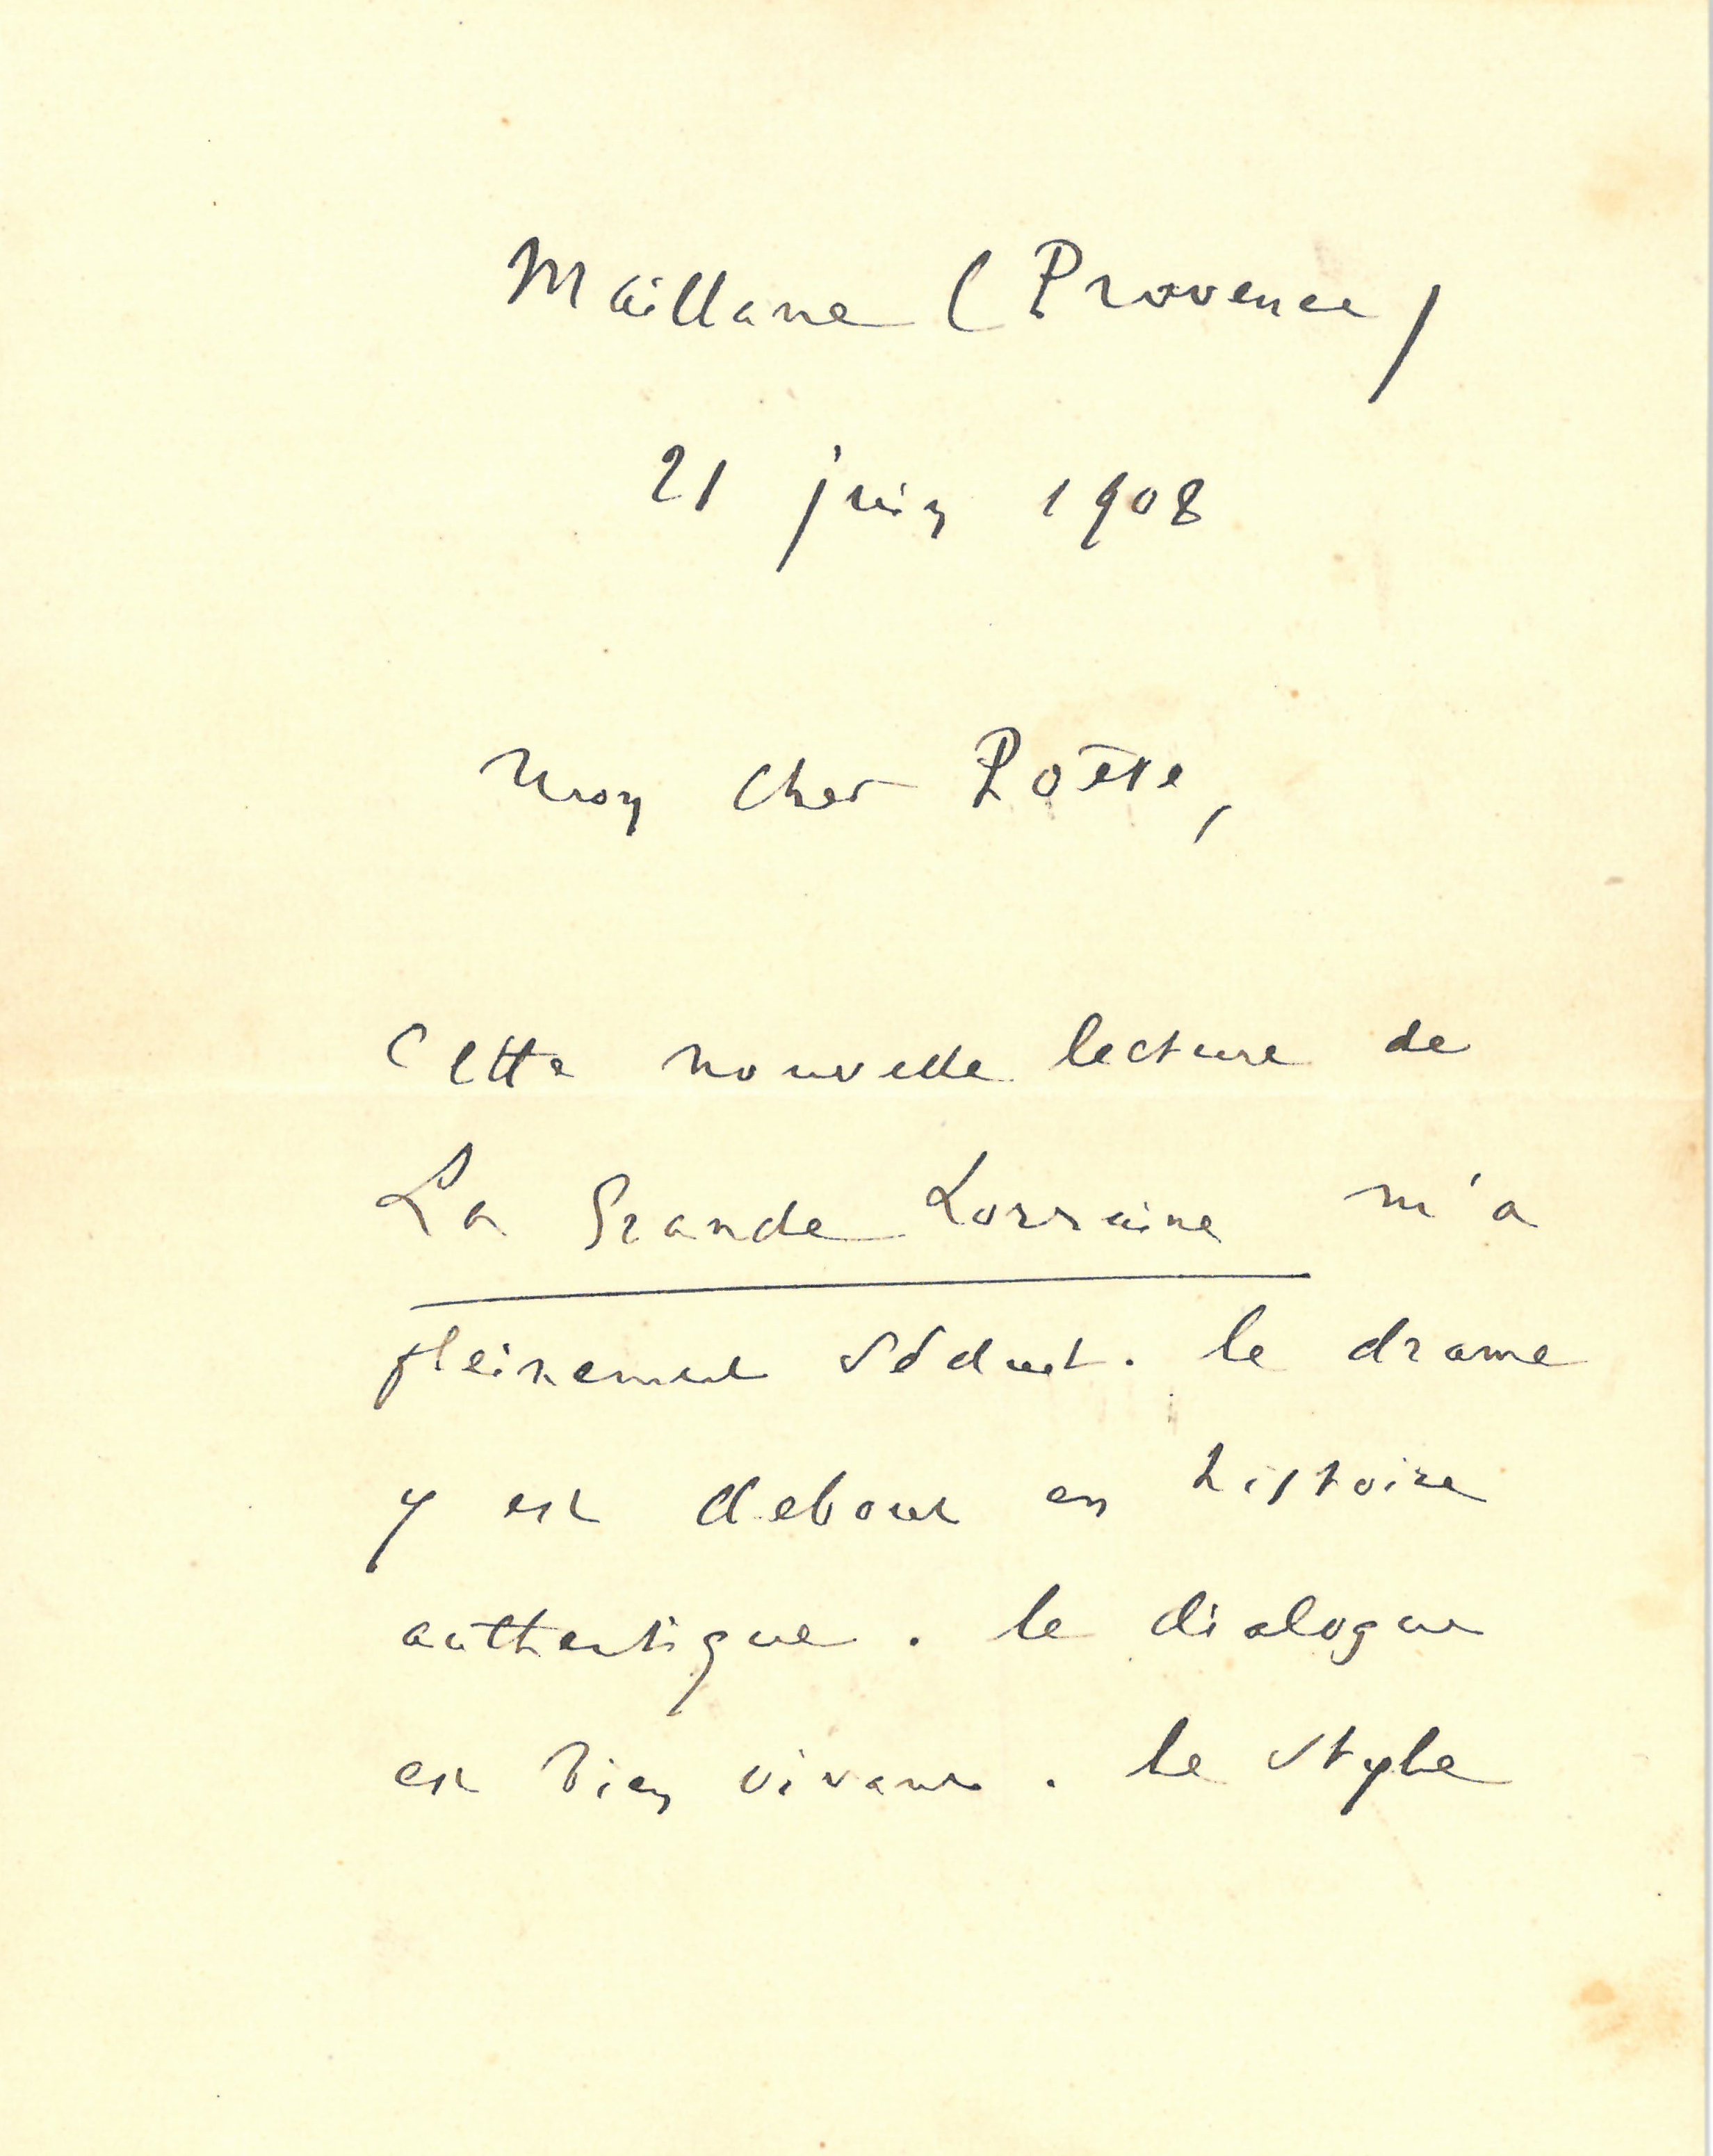 Maillane (Provence)
21 juin 1908
Mon cher Poëte,
Cette nouvelle lecture de
La Grande Lorraine m'a
pleinement séduit. le drame
y est debout en histoire
authentique. le dialogue
est bien vivant. le style